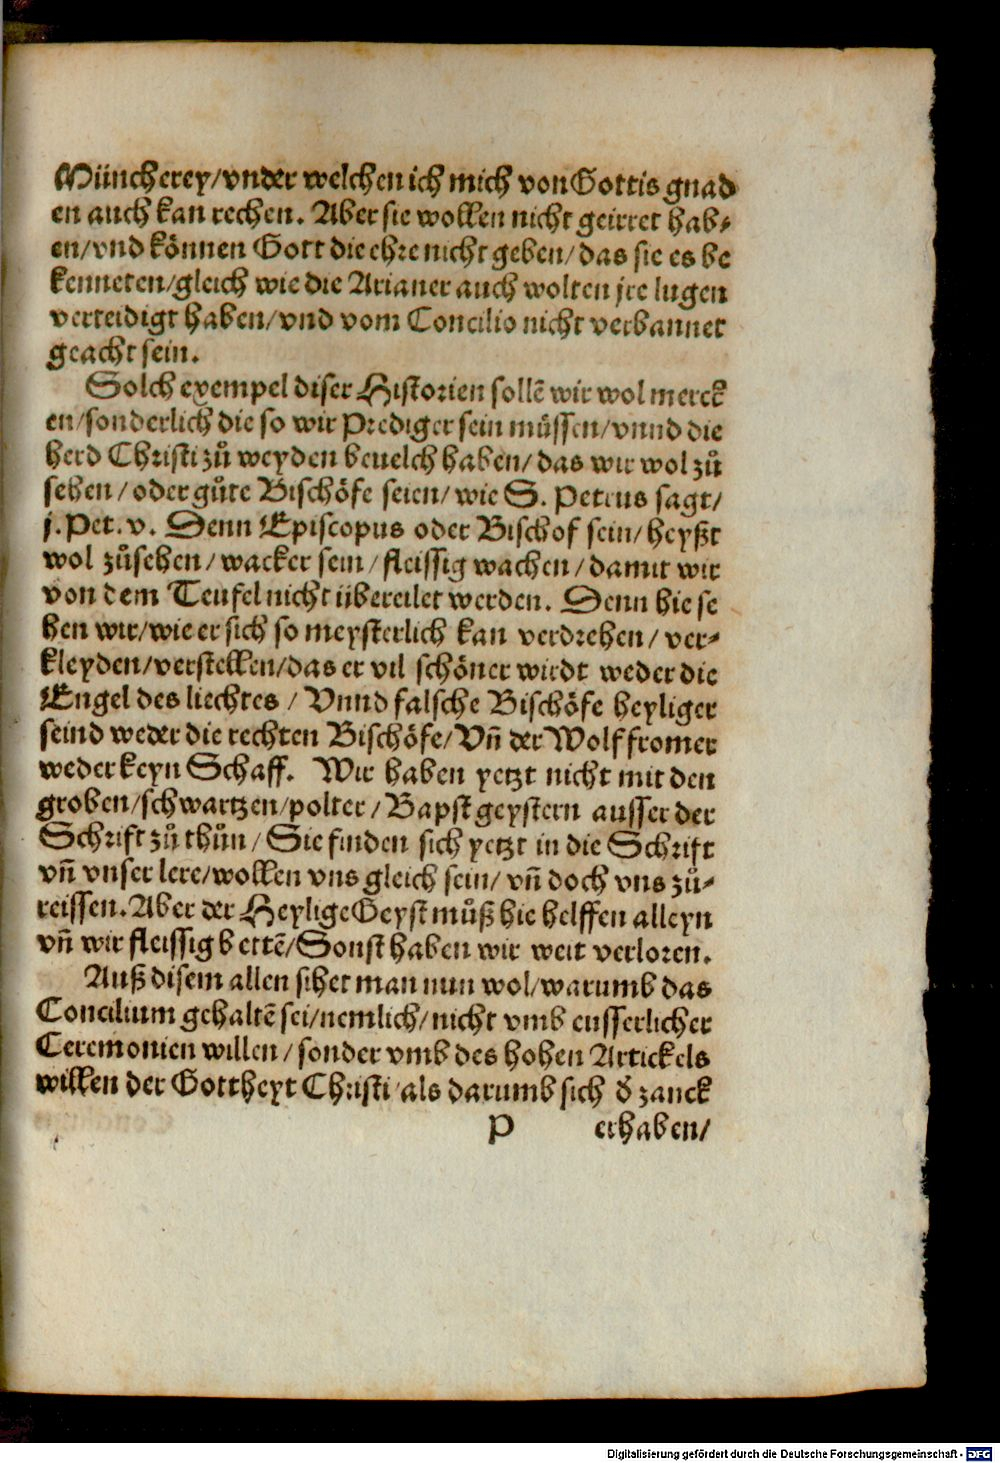 Müncherey/vnder welchen ich mich von Gottis gnad
en auch kan rechen. Aber sie wollen nicht geirret hab-
en/vnd können Gott die ehre nicht geben/das sie es be
kenneten/gleich wie die Arianer auch wolten jre lugen
verteidigt haben/vnd vom Concilio nicht verbannet
geacht sein.
Solch exempel diser Historien sollē wir wol merck
en/sonderlich die so wir Prediger sein müssen/vnnd die
herd Christi zů weyden beuelch haben/das wir wol zů
sehen/oder gůte Bischöfe seien/wie S. Petrus sagt/
j. Pet. v. Denn Episcopus oder Bischof sein/heyßt
wol zůsehen/wacker sein/fleissig wachen/damit wir
von dem Teufel nicht übereilet werden. Denn hie se
hen wir/wie er sich so meysterlich kan verdrehen/ver-
kleyden/verstellen/das er vil schöner wirdt weder die
Engel des liechtes/Vnnd falsche Bischöfe heyliger
seind weder die rechten Bischöfe/Vn̄ der Wolf fromer
weder keyn Schaff. Wir haben yetzt nicht mit den
groben/schwartzen/polter/Bapst geystern ausser der
Schrift zů thůn/Sie finden sich yetzt in die Schrift
vn̄ vnser lere/wollen vns gleich sein/vn̄ doch vns zů-
reissen. Aber der Heylige Geyst můß hie helffen alleyn
vn̄ wir fleissig bettē/Sonst haben wir weit verloren.
Auß disem allen sihet man nun wol/warumb das
Concilium gehaltē sei/nemlich/nicht vmb eusserlicher
Ceremonien willen/sonder vmb des hohen Artickels
willen der Gottheyt Christi/als darumb sich ð zanck
P erhaben/
Digitalisierung gefördert durch die Deutsche Forschungsgemeinschaft - DFG